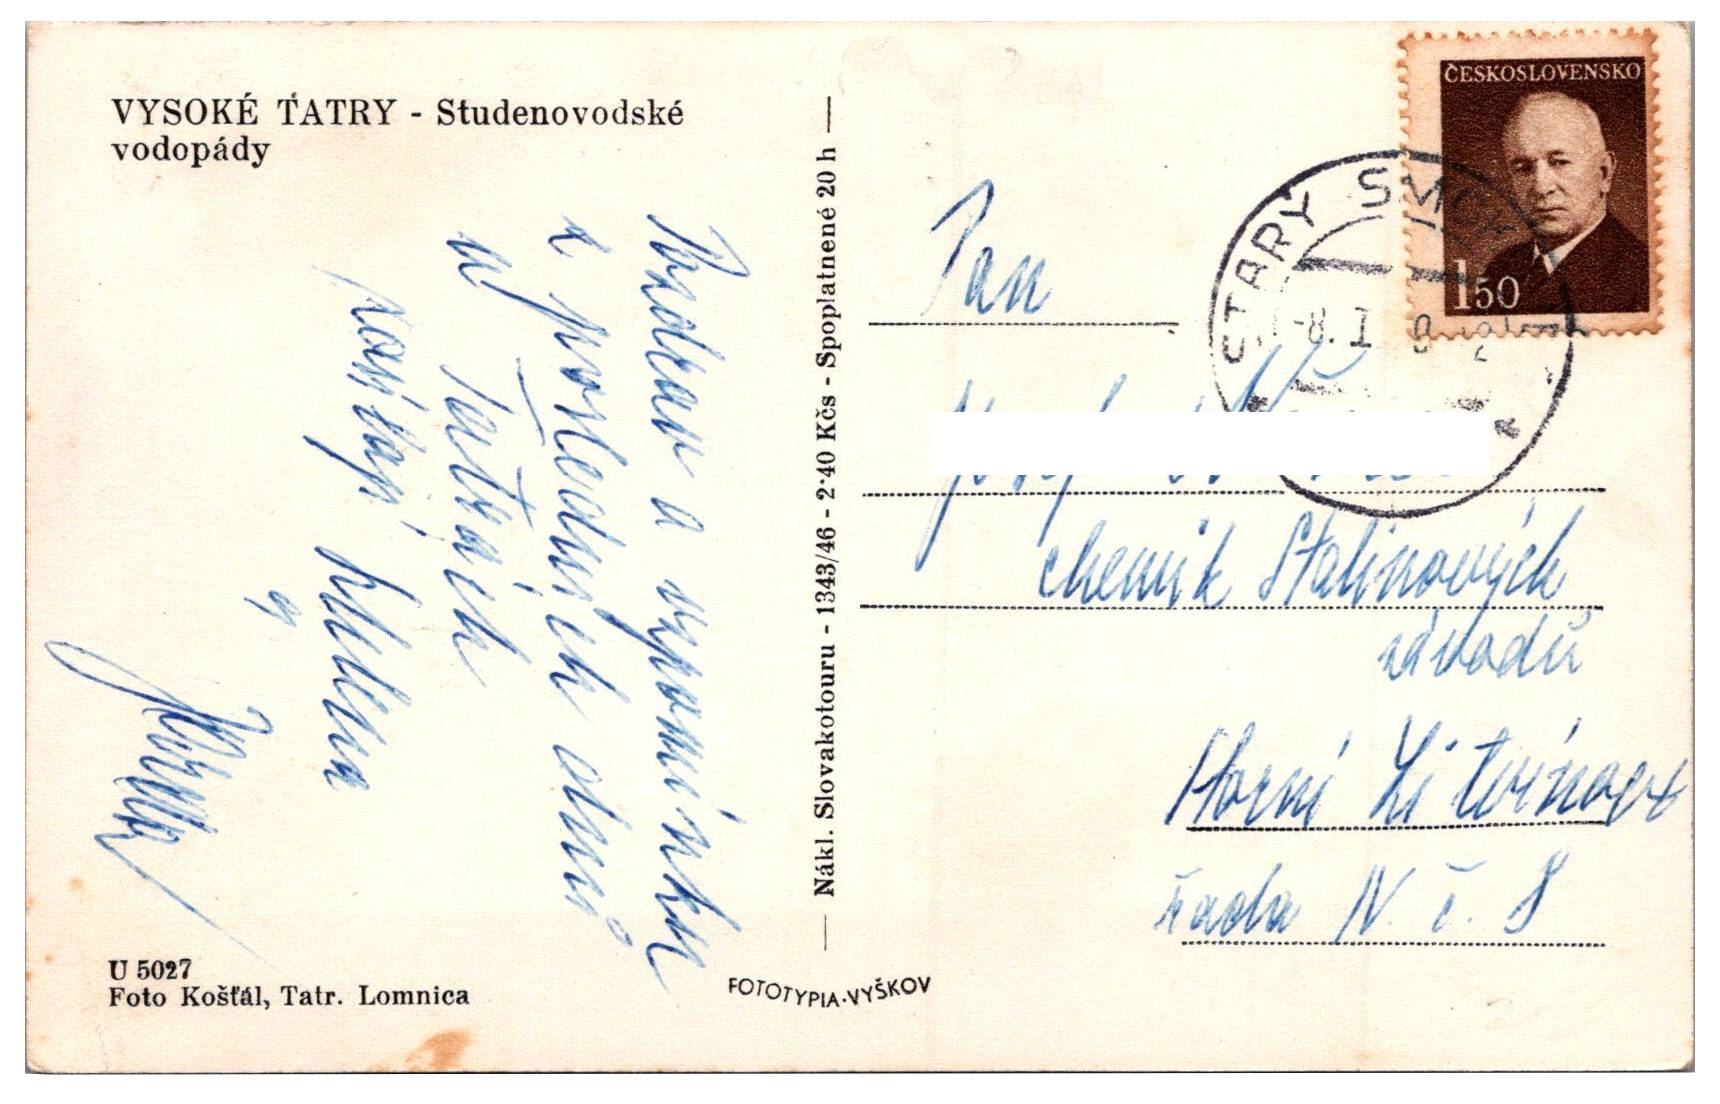 VYSOKÉ TATRY - Studenovodské
vodopády
Pozdrav a vzpomínku
z posledních dnů
v Tatrách
posílají
a
U 5027
Foto Košťál, Tatr. Lomnica
Nákl. Slovakotouru - 1343/46 - 2·40 Kčs - Spoplatnené 20 h
FOTOTYPIA-VYŠKOV
ČESKOSLOVENSKO
1 50
STARÝ SMO
-8. I
Pan
chemik Stalinových
závodů
Horní Litvínov
řada N. č. 8